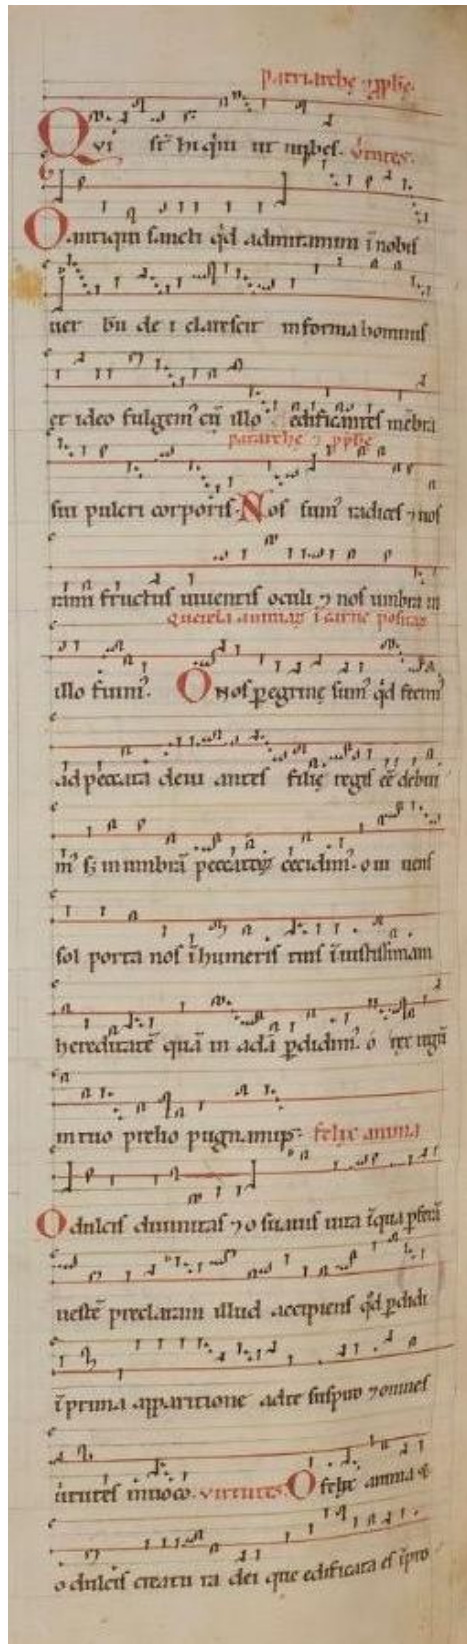 patriarchę ⁊ ꝓphę.
Qvi st̄ hi q̇i ut nubes. v̇tutes.
O antiqui sancti qd̓ admiramini ī nobis
uer bū de i clarescit in forma hominis
et ideo fulgem᷒ cū illo edificantes mēbra
patarchę ⁊ ꝓphę
sui pulcri corporis. Nos sum᷒ radices ⁊ uos
rami fructus uiuentis oculi ⁊ nos umbra in
Querela animaꝝ ī carne positaꝝ
illo fuim᷒. O nos ꝑegrinę sum᷒ qd̓ fecim᷒
ad peccata deui antes filię regis eē debui
m᷒ sꝫ in umbrā peccatoꝝ cecidim᷒. o ui uens
sol porta nos ī humeris tuis ī iustissimam
hereditatē quā in adā ꝑdidim᷒. ó rex regū
in tuo prelio pugnamus. felix anima
O dulcis diuinitas ⁊ o suauis uita ī qua ꝑferā
uestē preclaram illud accipiens qd̓ ꝑdidi
ī prima apparitione ad te suspiro ⁊ omnes
uirtutes inuoco. virtutes. O felix anima ⁊
o dulcis creatu ra dei que edificata es ī pro